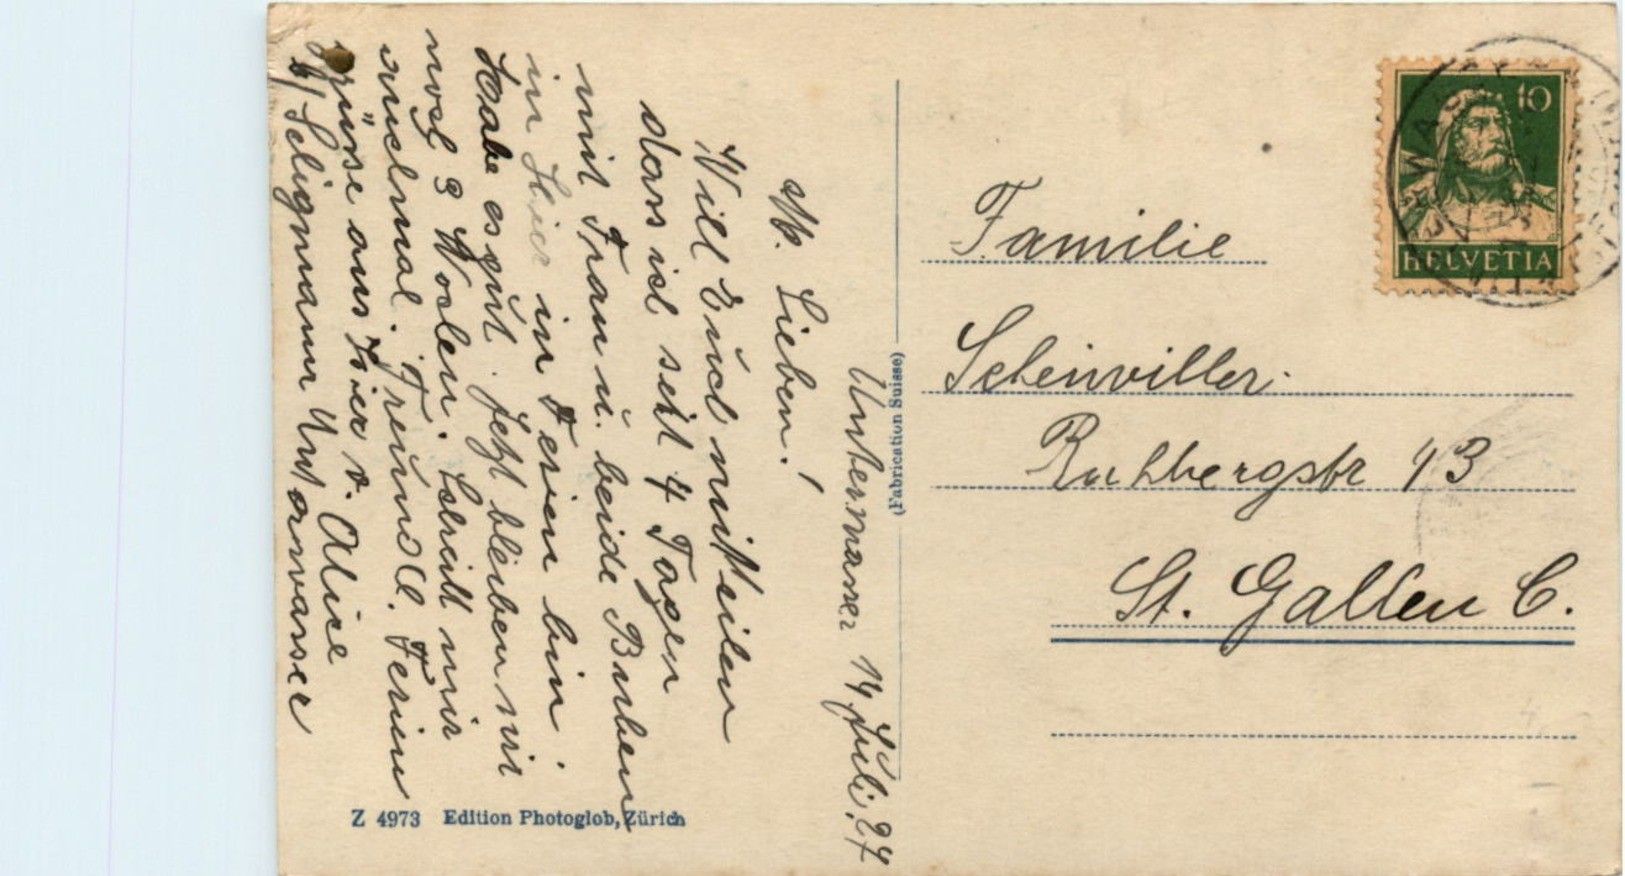 Unterwasser 14 Juli. 27
M. Lieben!
Will Euch mitteilen
dass ich seit 4 Tagen
mit Frau u. beide Buben
in Hier in Ferien bin.
Habe es gut. Jetzt bleiben wir
noch 3 Wochen. Schreibt mir
auchmal. Freundl. Ferien
grüsse aus hier v. Alice
b/ Seligmann Unterwasser
Z 4973 Edition Photoglob, Zürich
(Fabrication Suisse)
10
HELVETIA
Familie
Scheiwiller.
Rehbergstr 43
St. Gallen C.